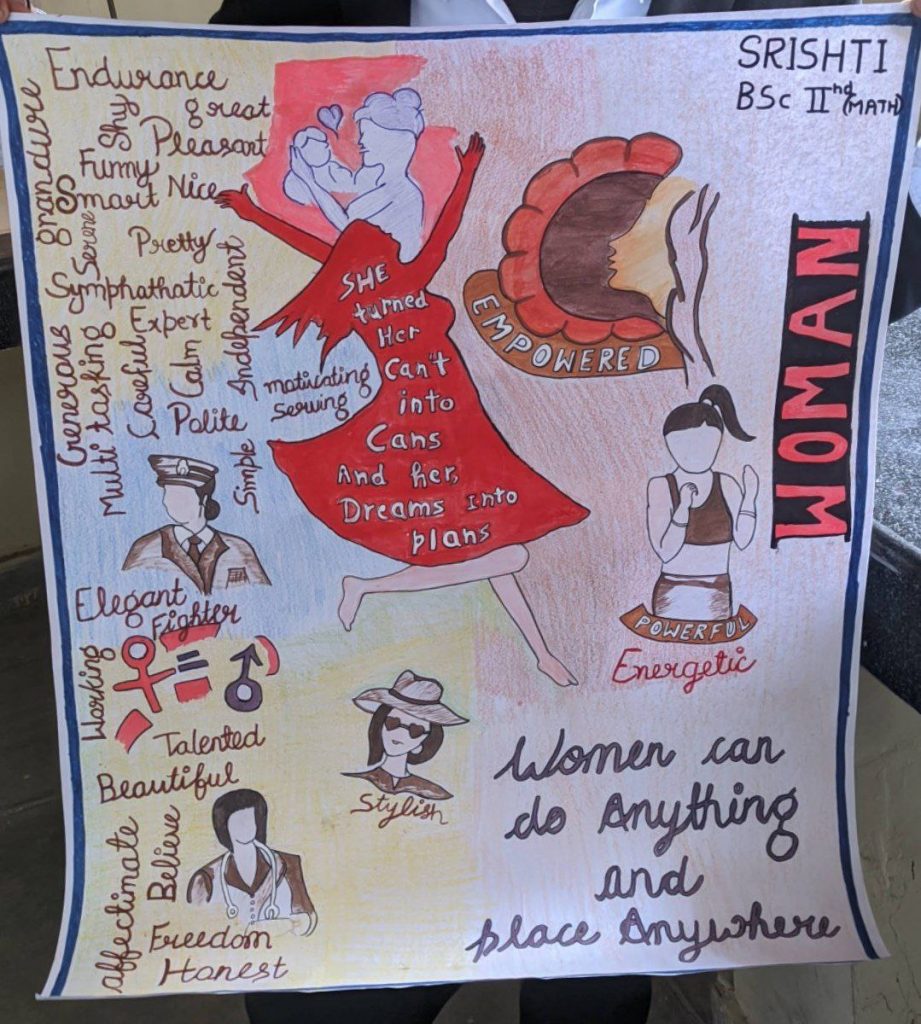 SRISHTI
BSc IInd (MATH)
WOMAN
Endurance
grandure
Shy
great
Pleasant
Funny
Smart
Nice
Serene
Pretty
Symphathatic
Independent
Expert
Generous
Multi tasking
Careful
Calm
Polite
Simple
moticating
serving
SHE
turned
Her
Can't
into
Cans
And her,
Dreams Into
plans
EMPOWERED
POWERFUL
Energetic
Elegant
Fighter
Working
Talented
Beautiful
Stylish
affectimate
Believe
Freedom
Honest
Women can
do Anything
and
place Anywhere